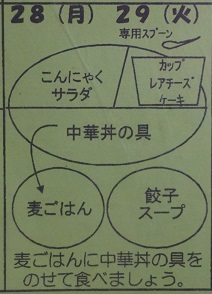 28（月） 29（火）
専用スプーン
こんにゃく
サラダ
カップ
レアチーズ
ケーキ
中華丼の具
麦ごはん
餃子
スープ
麦ごはんに中華丼の具を
のせて食べましょう。